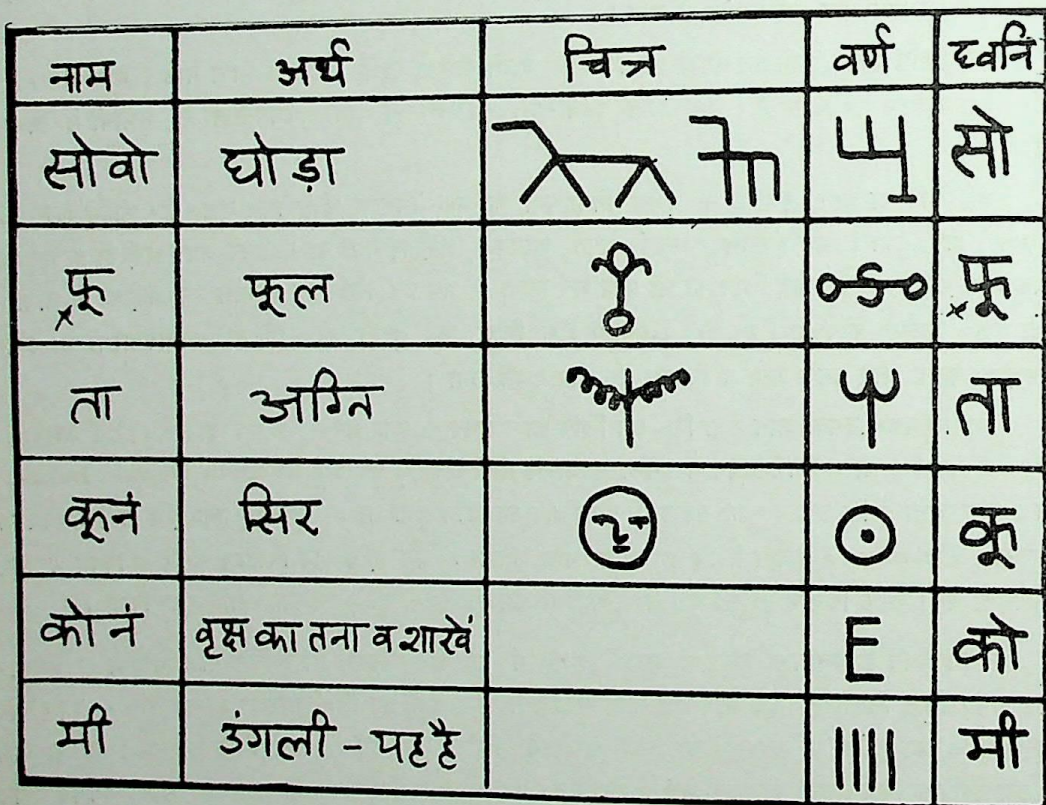 नाम अर्थ चित्र वर्ण ध्वनि
सोवो घोड़ा सो
फ़ू फूल फ़ू
ता अग्नि ता
कूनं सिर कू
कोनं वृक्ष का तना व शाखें E को
मी उंगली - यह है |||| मी